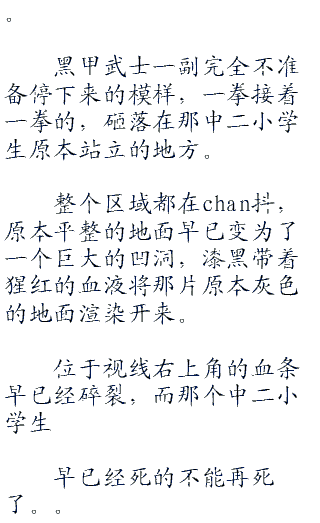 。
黑甲武士一副完全不准
备停下来的模样，一拳接着
一拳的，砸落在那中二小学
生原本站立的地方。
整个区域都在chan抖，
原本平整的地面早已变为了
一个巨大的凹洞，漆黑带着
猩红的血液将那片原本灰色
的地面渲染开来。
位于视线右上角的血条
早已经碎裂，而那个中二小
学生
早已经死的不能再死
了。。